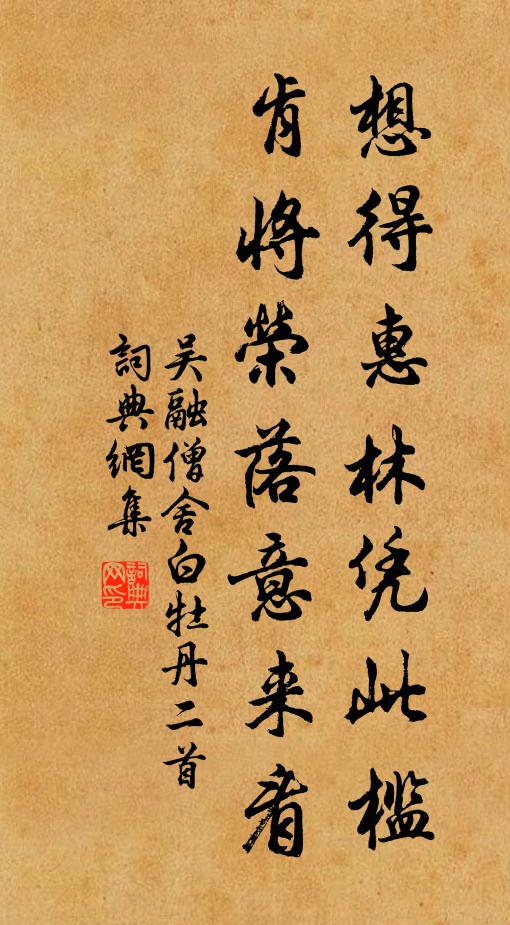 想得惠林凭此槛
肯將榮落意来看
吴融僧舍白牡丹二首
詞典網集
詞典网印